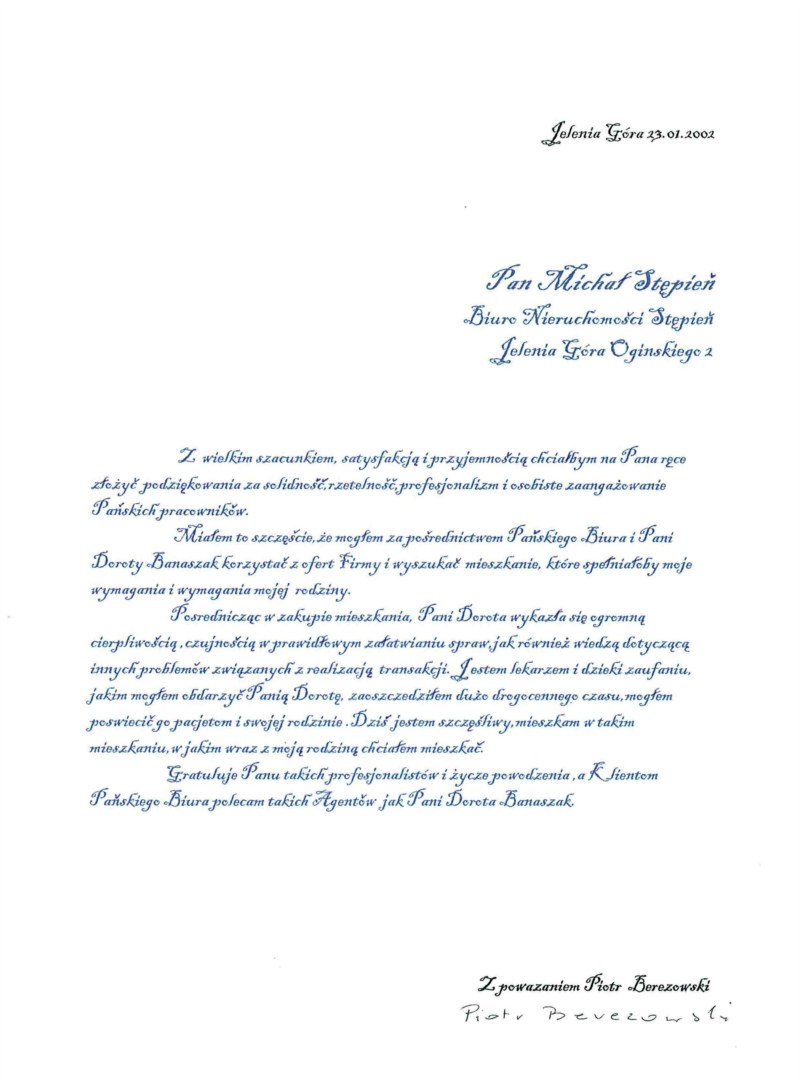 Jelenia Góra 23.01.2002
Pan Michał Stępień
Biuro Nieruchomości Stępień
Jelenia Góra Oginskiego 2
Z wielkim szacunkiem, satysfakcją i przyjemnością chciałbym na Pana ręce
złożyć podziękowania za solidność, rzetelność, profesjonalizm i osobiste zaangażowanie
Pańskich pracowników.
Miałem to szczęście, że mogłem za pośrednictwem Pańskiego Biura i Pani
Doroty Banaszak korzystać z ofert Firmy i wyszukać mieszkanie, które spełniałoby moje
wymagania i wymagania mojęj rodziny.
Posrednicząc w zakupie mieszkania, Pani Dorota wykazła się ogromną
cierpliwością, czujnością w prawidłowym załatwianiu spraw, jak również wiedzą dotyczącą
innych problemów związanych z realizacją transakcji. Jestem lekarzem i dzieki zaufaniu,
jakim mogłem obdarzyć Panią Dorotę, zaoszczedziłem dużo drogocennego czasu, mogłem
poswiecić go pacjetom i swojęj rodzinie. Dziś jestem szczęśliwy, mieszkam w takim
mieszkaniu, w jakim wraz z moją rodziną chciałem mieszkać.
Gratuluje Panu takich profesjonalistów i życze powodzenia, a Klientom
Pańskiego Biura polecam takich Agentów jak Pani Dorota Banaszak.
Z powazaniem Piotr Berezowski
Piotr Berezowski